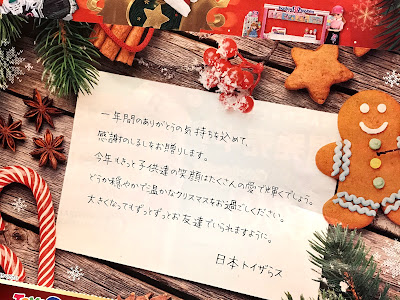 一年間のありがとうの気持ちを込めて、
感謝のしるしをお贈りします。
今年もきっと子供達の笑顔はたくさんの愛で輝くでしょう。
どうか穏やかで温かなクリスマスをお過ごしください。
大きくなってもずっとずっとお友達でいられますように。
日本トイザらス